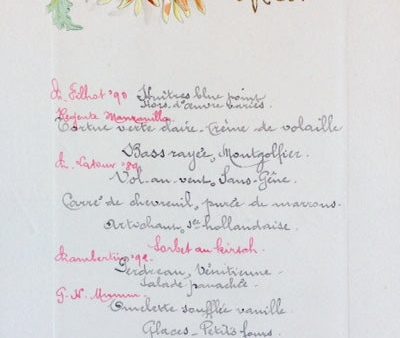 Ch. Filhot '90 Huîtres blue point
Hors d'œuvre variés.
Regente Manzanilla
Tortue verte claire - Crème de volaille
Bass rayée, Montgolfier.
Ch. Latour '89
Vol-au-vent, Sans-Gêne.
Carré de chevreuil, purée de marrons.
Artichaut, sce hollandaise.
Sorbet au kirsch.
Chambertin '92
Perdreau, Vénitienne.
Salade panachée
G. H. Mumm
Omelette soufflée vanille
Glaces - Petits fours.